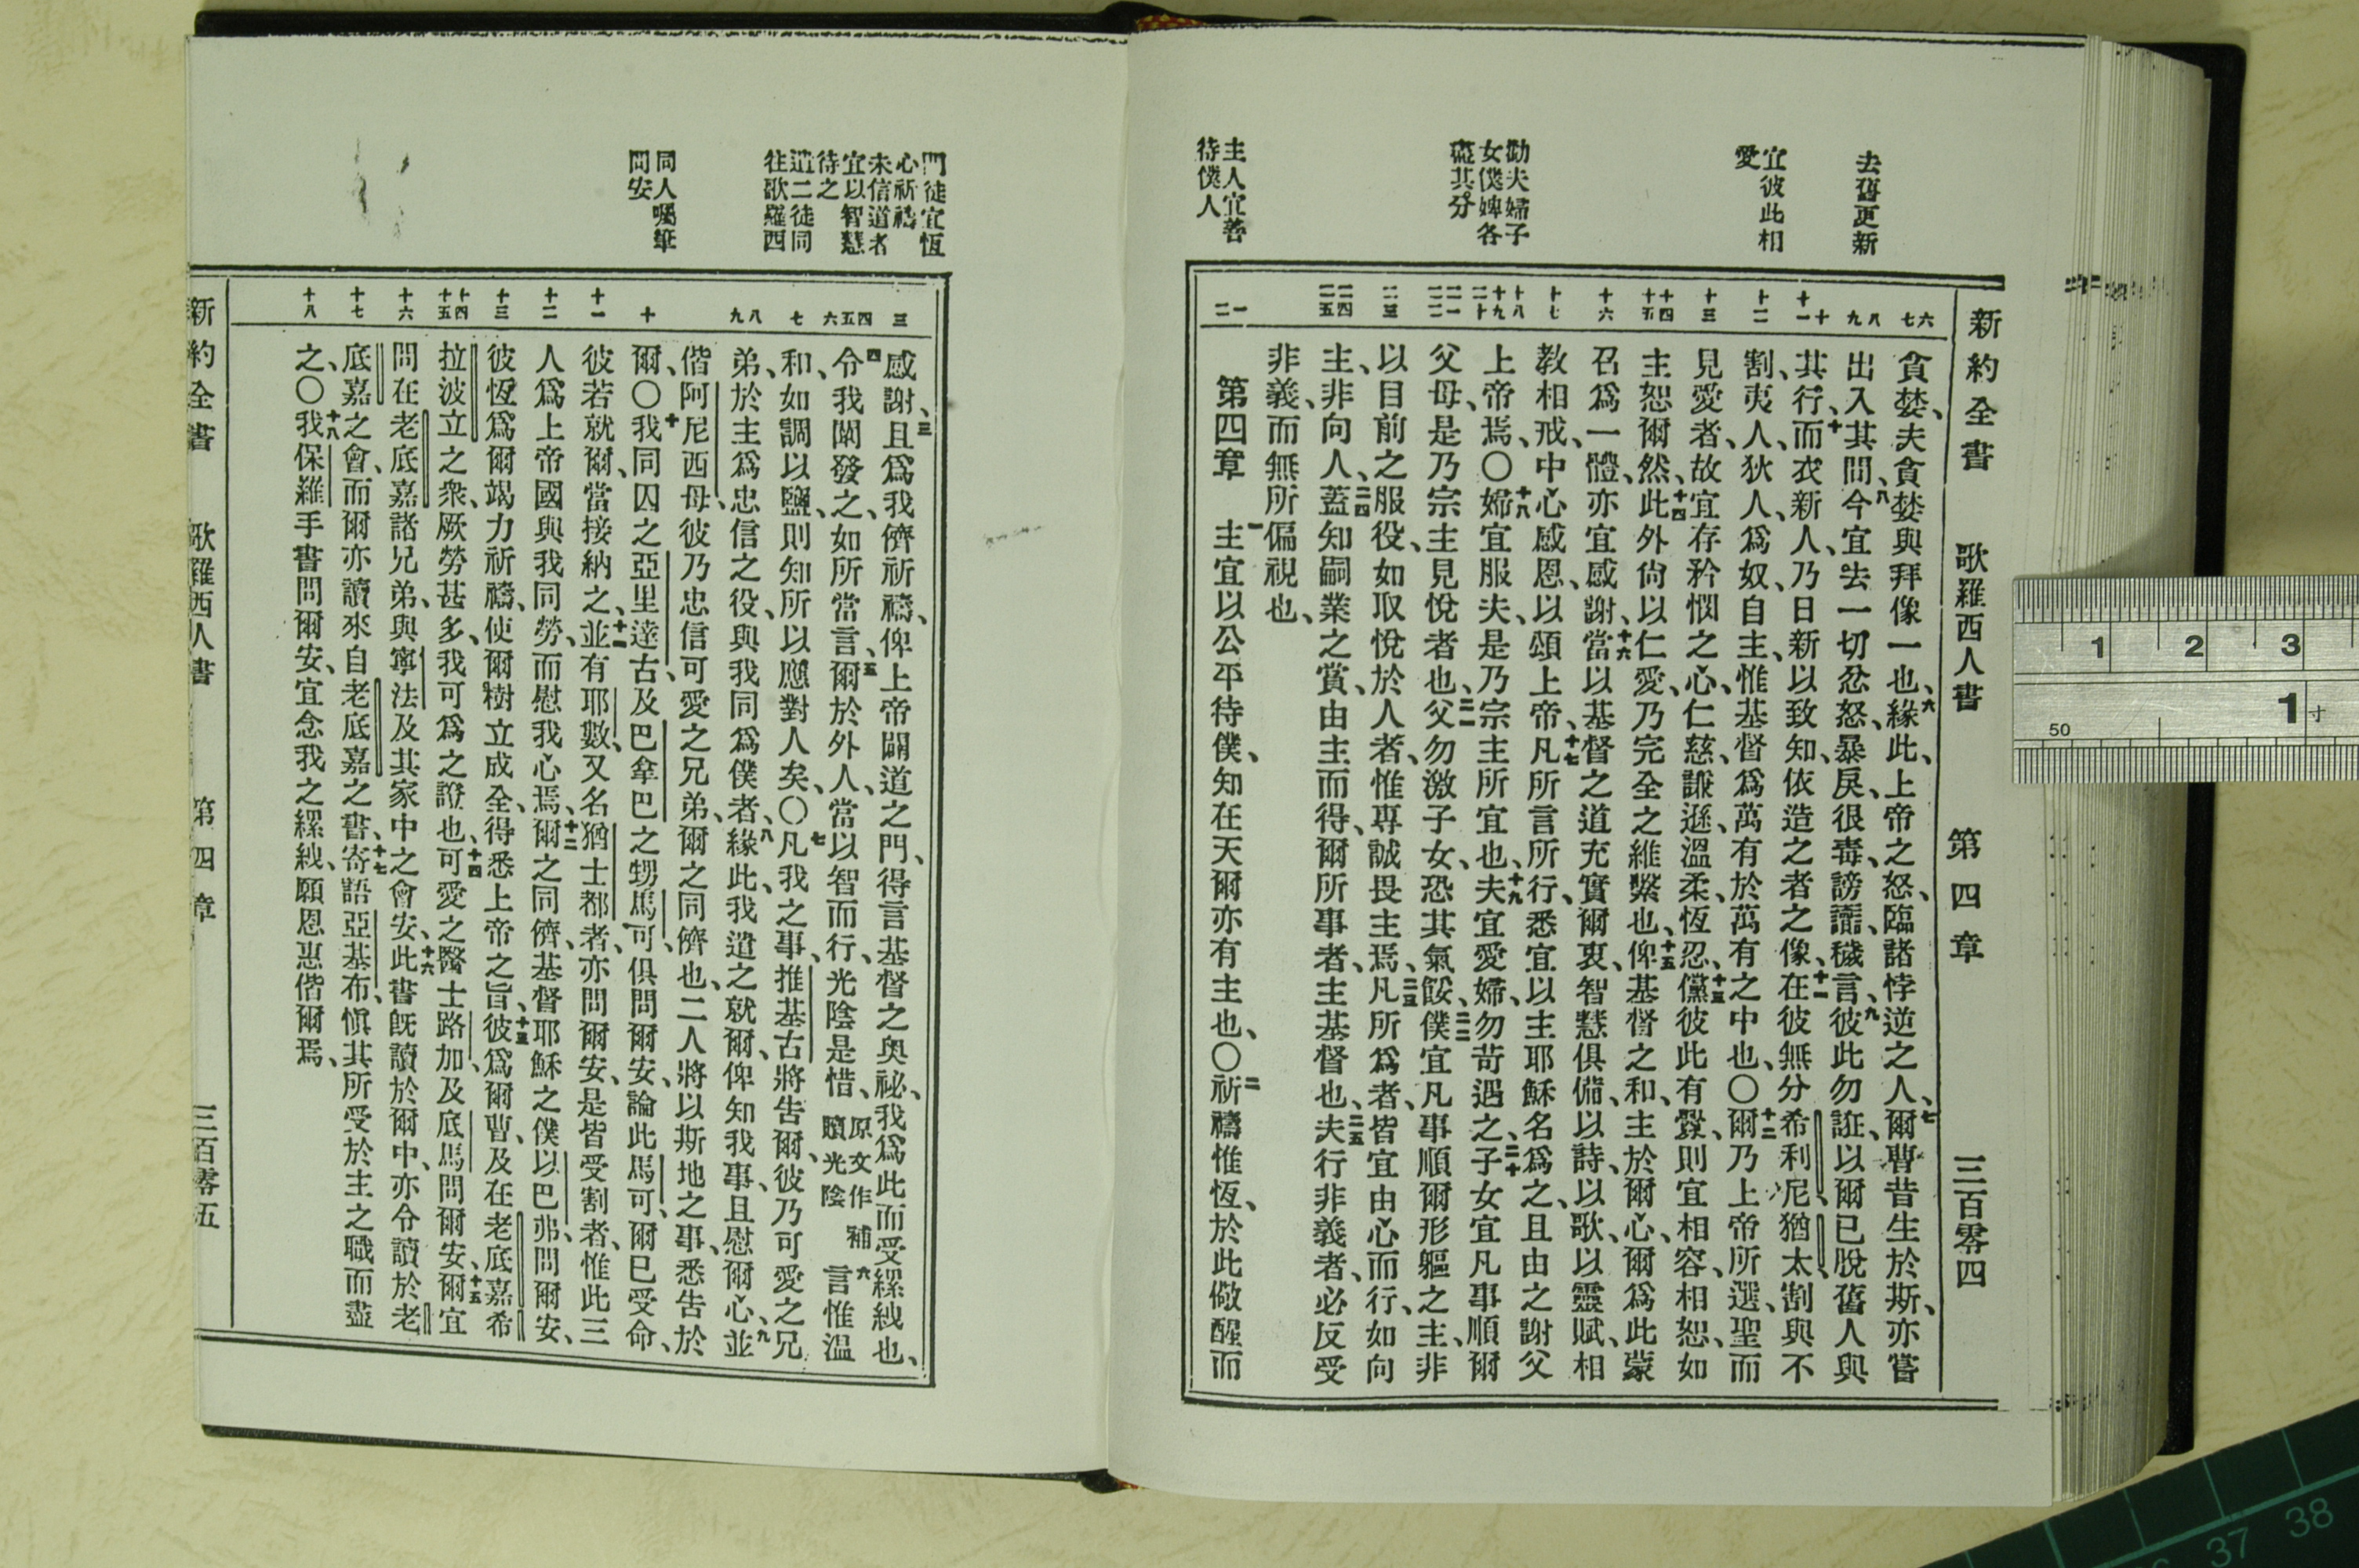 新約全書 歌羅西人書 第四章 三百零四
去舊更新
宜彼此相
愛
勸夫婦子
女僕婢各
盡其分
主人宜善
待僕人
六
七
八
九
十
十一
十二
十三
十四
十五
十六
十七
十八
十九
二十
二一
二二
二三
二四
二五
一
二
貪婪、夫貪婪與拜像一也、六緣此、上帝之怒、臨諸悖逆之人、七爾曹昔生於斯、亦嘗
出入其間、八今宜去一切忿怒、暴戾、很毒、謗讟、穢言、九彼此勿誑、以爾已脫舊人與
其行、十而衣新人、乃日新以致知、依造之者之像、十一在彼無分希利尼、猶太、割與不
割、夷人、狄人、為奴、自主、惟基督為萬有於萬有之中也、〇十二爾乃上帝所選、聖而
見愛者、故宜存矜憫之心、仁慈、謙遜、溫柔、恆忍、十三儻彼此有釁、則宜相容、相恕、如
主恕爾然、十四此外尙以仁愛、乃完全之維繫也、十五俾基督之和、主於爾心、爾為此蒙
召為一體、亦宜感謝、十六當以基督之道充實爾衷、智慧俱備、以詩、以歌、以靈賦、相
教相戒、中心感恩、以頌上帝、十七凡所言所行、悉宜以主耶穌名為之、且由之謝父
上帝焉、〇十八婦宜服夫、是乃宗主所宜也、十九夫宜愛婦、勿苛遇之、二十子女宜凡事順爾
父母、是乃宗主見悅者也、二一父勿激子女、恐其氣餒、二二僕宜凡事順爾形軀之主、非
以目前之服役、如取悅於人者、惟專誠畏主焉、二三凡所為者、皆宜由心而行、如向
主、非向人、二四蓋知嗣業之賞、由主而得、爾所事者、主基督也、二五夫行非義者、必反受
非義、而無所偏視也、
第四章 一主宜以公平待僕、知在天爾亦有主也、〇二祈禱惟恆、於此儆醒而
門徒宜恆
心祈禱
未信道者
宜以智慧
待之
遣二徒同
往歌羅西
同人囑筆
問安
三
四
五
六
七
八
九
十
十一
十二
十三
十四
十五
十六
十七
十八
感謝、三且為我儕祈禱、俾上帝闢道之門、得言基督之奧祕、我為此而受縲絏也、
四令我闡發之、如所當言、五爾於外人、當以智而行、光陰是惜、原文作補贖光陰 六言惟溫
和、如調以鹽、則知所以應對人矣、〇七凡我之事、推基古將告爾、彼乃可愛之兄
弟、於主為忠信之役、與我同為僕者、八緣此、我遣之就爾、俾知我事、且慰爾心、九並
偕阿尼西母、彼乃忠信可愛之兄弟、爾之同儕也、二人將以斯地之事、悉告於
爾、〇十我同囚之亞里達古、及巴拿巴之甥馬可、俱問爾安、論此馬可、爾已受命、
彼若就爾、當接納之、十一並有耶數、又名猶士都者、亦問爾安、是皆受割者、惟此三
人為上帝國與我同勞、而慰我心焉、十二爾之同儕、基督耶穌之僕以巴弗、問爾安、
彼恆為爾竭力祈禱、使爾樹立成全、得悉上帝之旨、十三彼為爾曹、及在老底嘉、希
拉波立之衆、厥勞甚多、我可為之證也、十四可愛之醫士路加、及底馬問爾安、十五爾宜
問在老底嘉諸兄弟、與寧法及其家中之會安、十六此書旣讀於爾中、亦令讀於老
底嘉之會、而爾亦讀來自老底嘉之書、十七寄語亞基布、愼其所受於主之職而盡
之、〇十八我保羅手書問爾安、宜念我之縲絏、願恩惠偕爾焉、
新約全書 歌羅西人書 第四章 三百零五
1 2 3
50 1寸
37 38